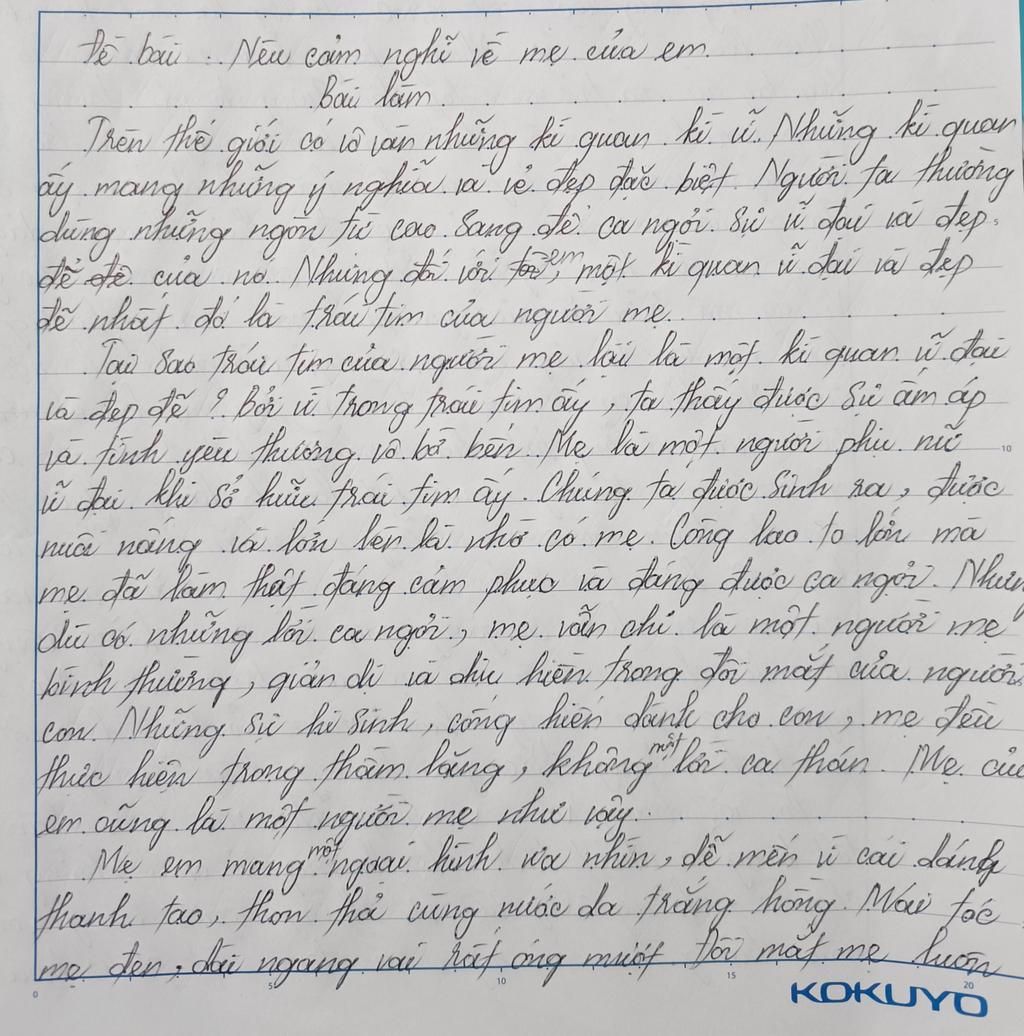 Đề bài : Nêu cảm nghĩ về mẹ của em.
Bài làm.
Trên thế giới có vô vàn những kì quan kì vĩ. Những kì quan
ấy mang những ý nghĩa và vẻ đẹp đặc biệt. Người ta thường
dùng những ngôn từ cao sang để ca ngợi sự vĩ đại và đẹp
đẽ của nó. Nhưng đối với em, một kì quan vĩ đại và đẹp
đẽ nhất đó là trái tim của người mẹ.
Tại sao trái tim của người mẹ lại là một kì quan vĩ đại
và đẹp đẽ ? Bởi vì trong trái tim ấy, ta thấy được sự ấm áp
và tình yêu thương vô bờ bến. Mẹ là một người phụ nữ
vĩ đại khi sở hữu trái tim ấy. Chúng ta được sinh ra, được
nuôi nấng và lớn lên là nhờ có mẹ. Công lao to lớn mà
mẹ đã làm thật đáng cảm phục và đáng được ca ngợi. Nhưng
dù có những lời ca ngợi, mẹ vẫn chỉ là một người mẹ
bình thường, giản dị và dịu hiền trong đôi mắt của người
con. Những sự hi sinh, cống hiến dành cho con, mẹ đều
thực hiện trong thầm lặng, không một lời ca thán. Mẹ của
em cũng là một người mẹ như vậy.
Mẹ em mang một ngoại hình ưa nhìn, dễ mến vì cái dáng
thanh tao, thon thả cùng nước da trắng hồng. Mái tóc
mẹ đen, dài ngang vai rất óng mượt. Đôi mắt mẹ luôn
0 5 10 15 20
10
KOKUYO